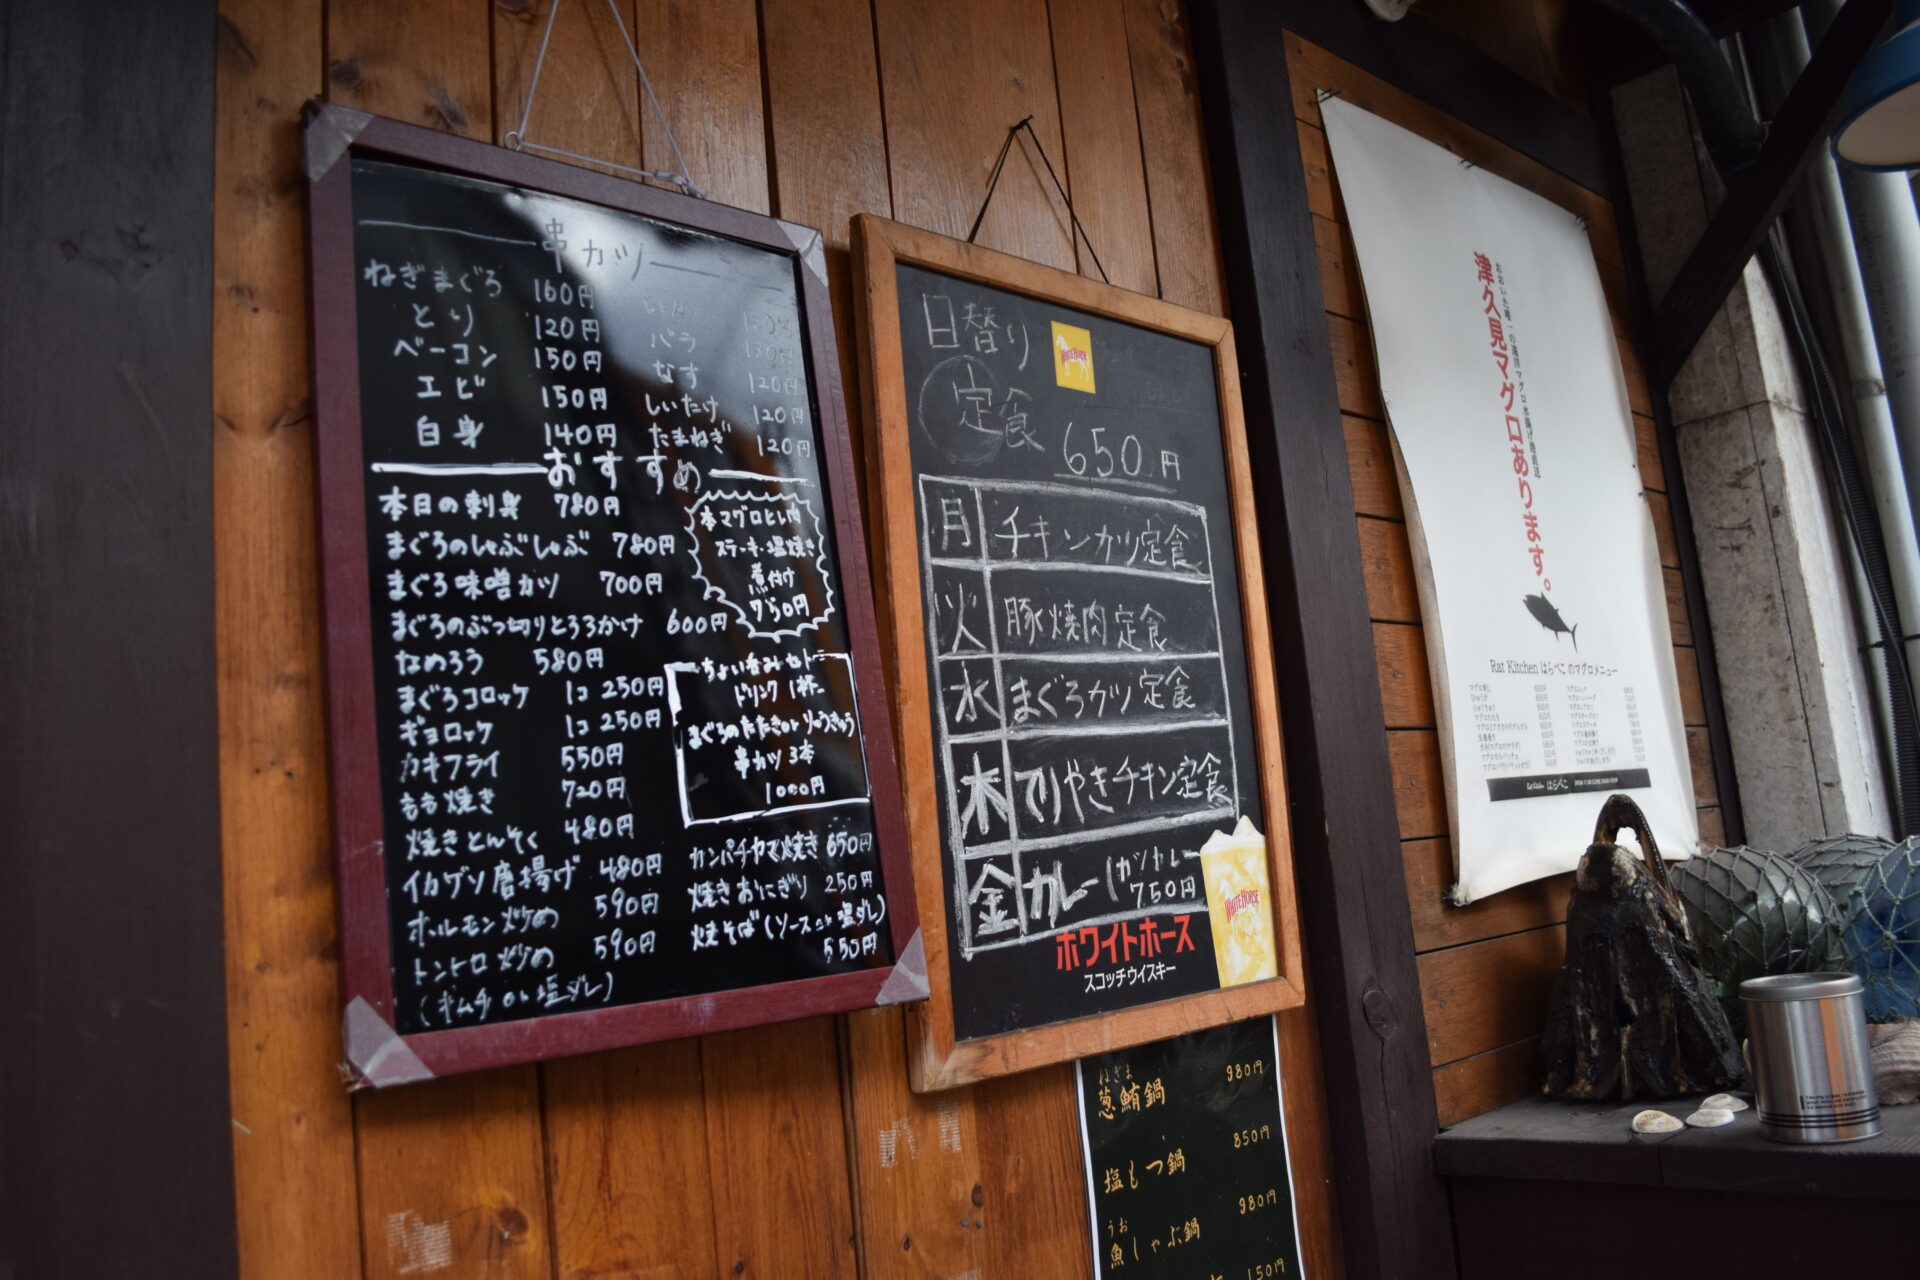 串カツ
ねぎまぐろ 160円
とり 120円
ベーコン 150円
エビ 150円
白身 140円
いか
バラ 130円
なす 120円
しいたけ 120円
たまねぎ 120円
おすすめ
本日の刺身 780円
まぐろのしゃぶしゃぶ 780円
まぐろ味噌カツ 700円
まぐろのぶつ切りとろろかけ 600円
なめろう 580円
まぐろコロッケ 1コ 250円
ギョロッケ 1コ 250円
カキフライ 550円
もも焼き 720円
焼きとんそく 480円
イカゲソ唐揚げ 480円
ホルモン炒め 590円
トントロ炒め 590円
(キムチor塩ダレ)
本マグロヒレ肉
ステーキ・塩焼き
煮付け
750円
ちょい呑みセット
ドリンク 1杯
まぐろのたたきorりゅうきゅう
串カツ 3本
1000円
カンパチヤマ焼き 650円
焼きおにぎり 250円
焼そば(ソースor塩ダレ)
550円
日替り
定食
650円
WHITE HORSE
月 チキンカツ定食
火 豚焼肉定食
水 まぐろカツ定食
木 てりやきチキン定食
金 カレー(カツカレー
750円
WHITE HORSE
ホワイトホース
スコッチウイスキー
ねぎま
葱鮪鍋 980円
塩もつ鍋 850円
うお
魚しゃぶ鍋 980円
150円
おおいた唯一の遠洋マグロ水揚げ港直送
津久見マグロあります。
Rat Kitchen はらぺこのマグロメニュー
Rat Kitchen はらぺこ